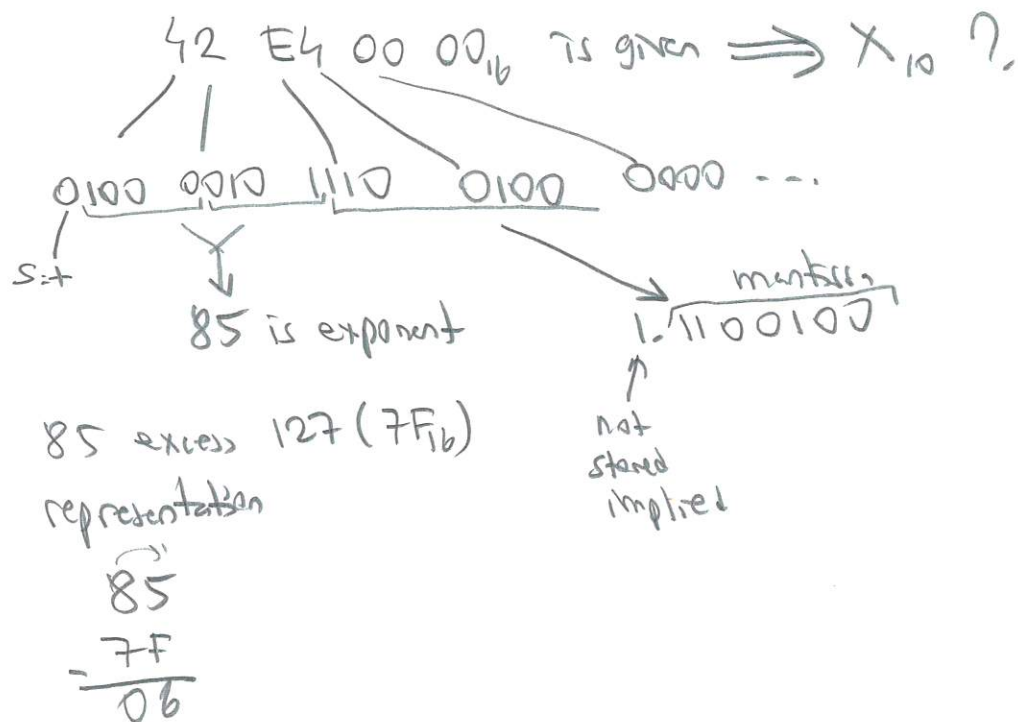 42 E4 00 00₁₆ is given ⟹ X₁₀ ?
0100 0010 1110 0100 0000 ...
S:+
85 is exponent
mantissa
1.1100100
not
stored
implied
85 excess 127 (7F₁₆)
representation
85
- 7F
06